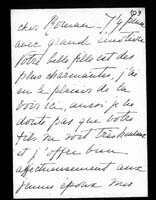 109
cher Roman — J'y pense
avec grande émotion
Votre belle fille est des
plus charmantes, j'ai
eu le plaisir de la
voir ici, aussi je ne
doute pas que votre
fils ne soit très heureux
et j'offre bien
affectueusement aux
jeunes époux mes